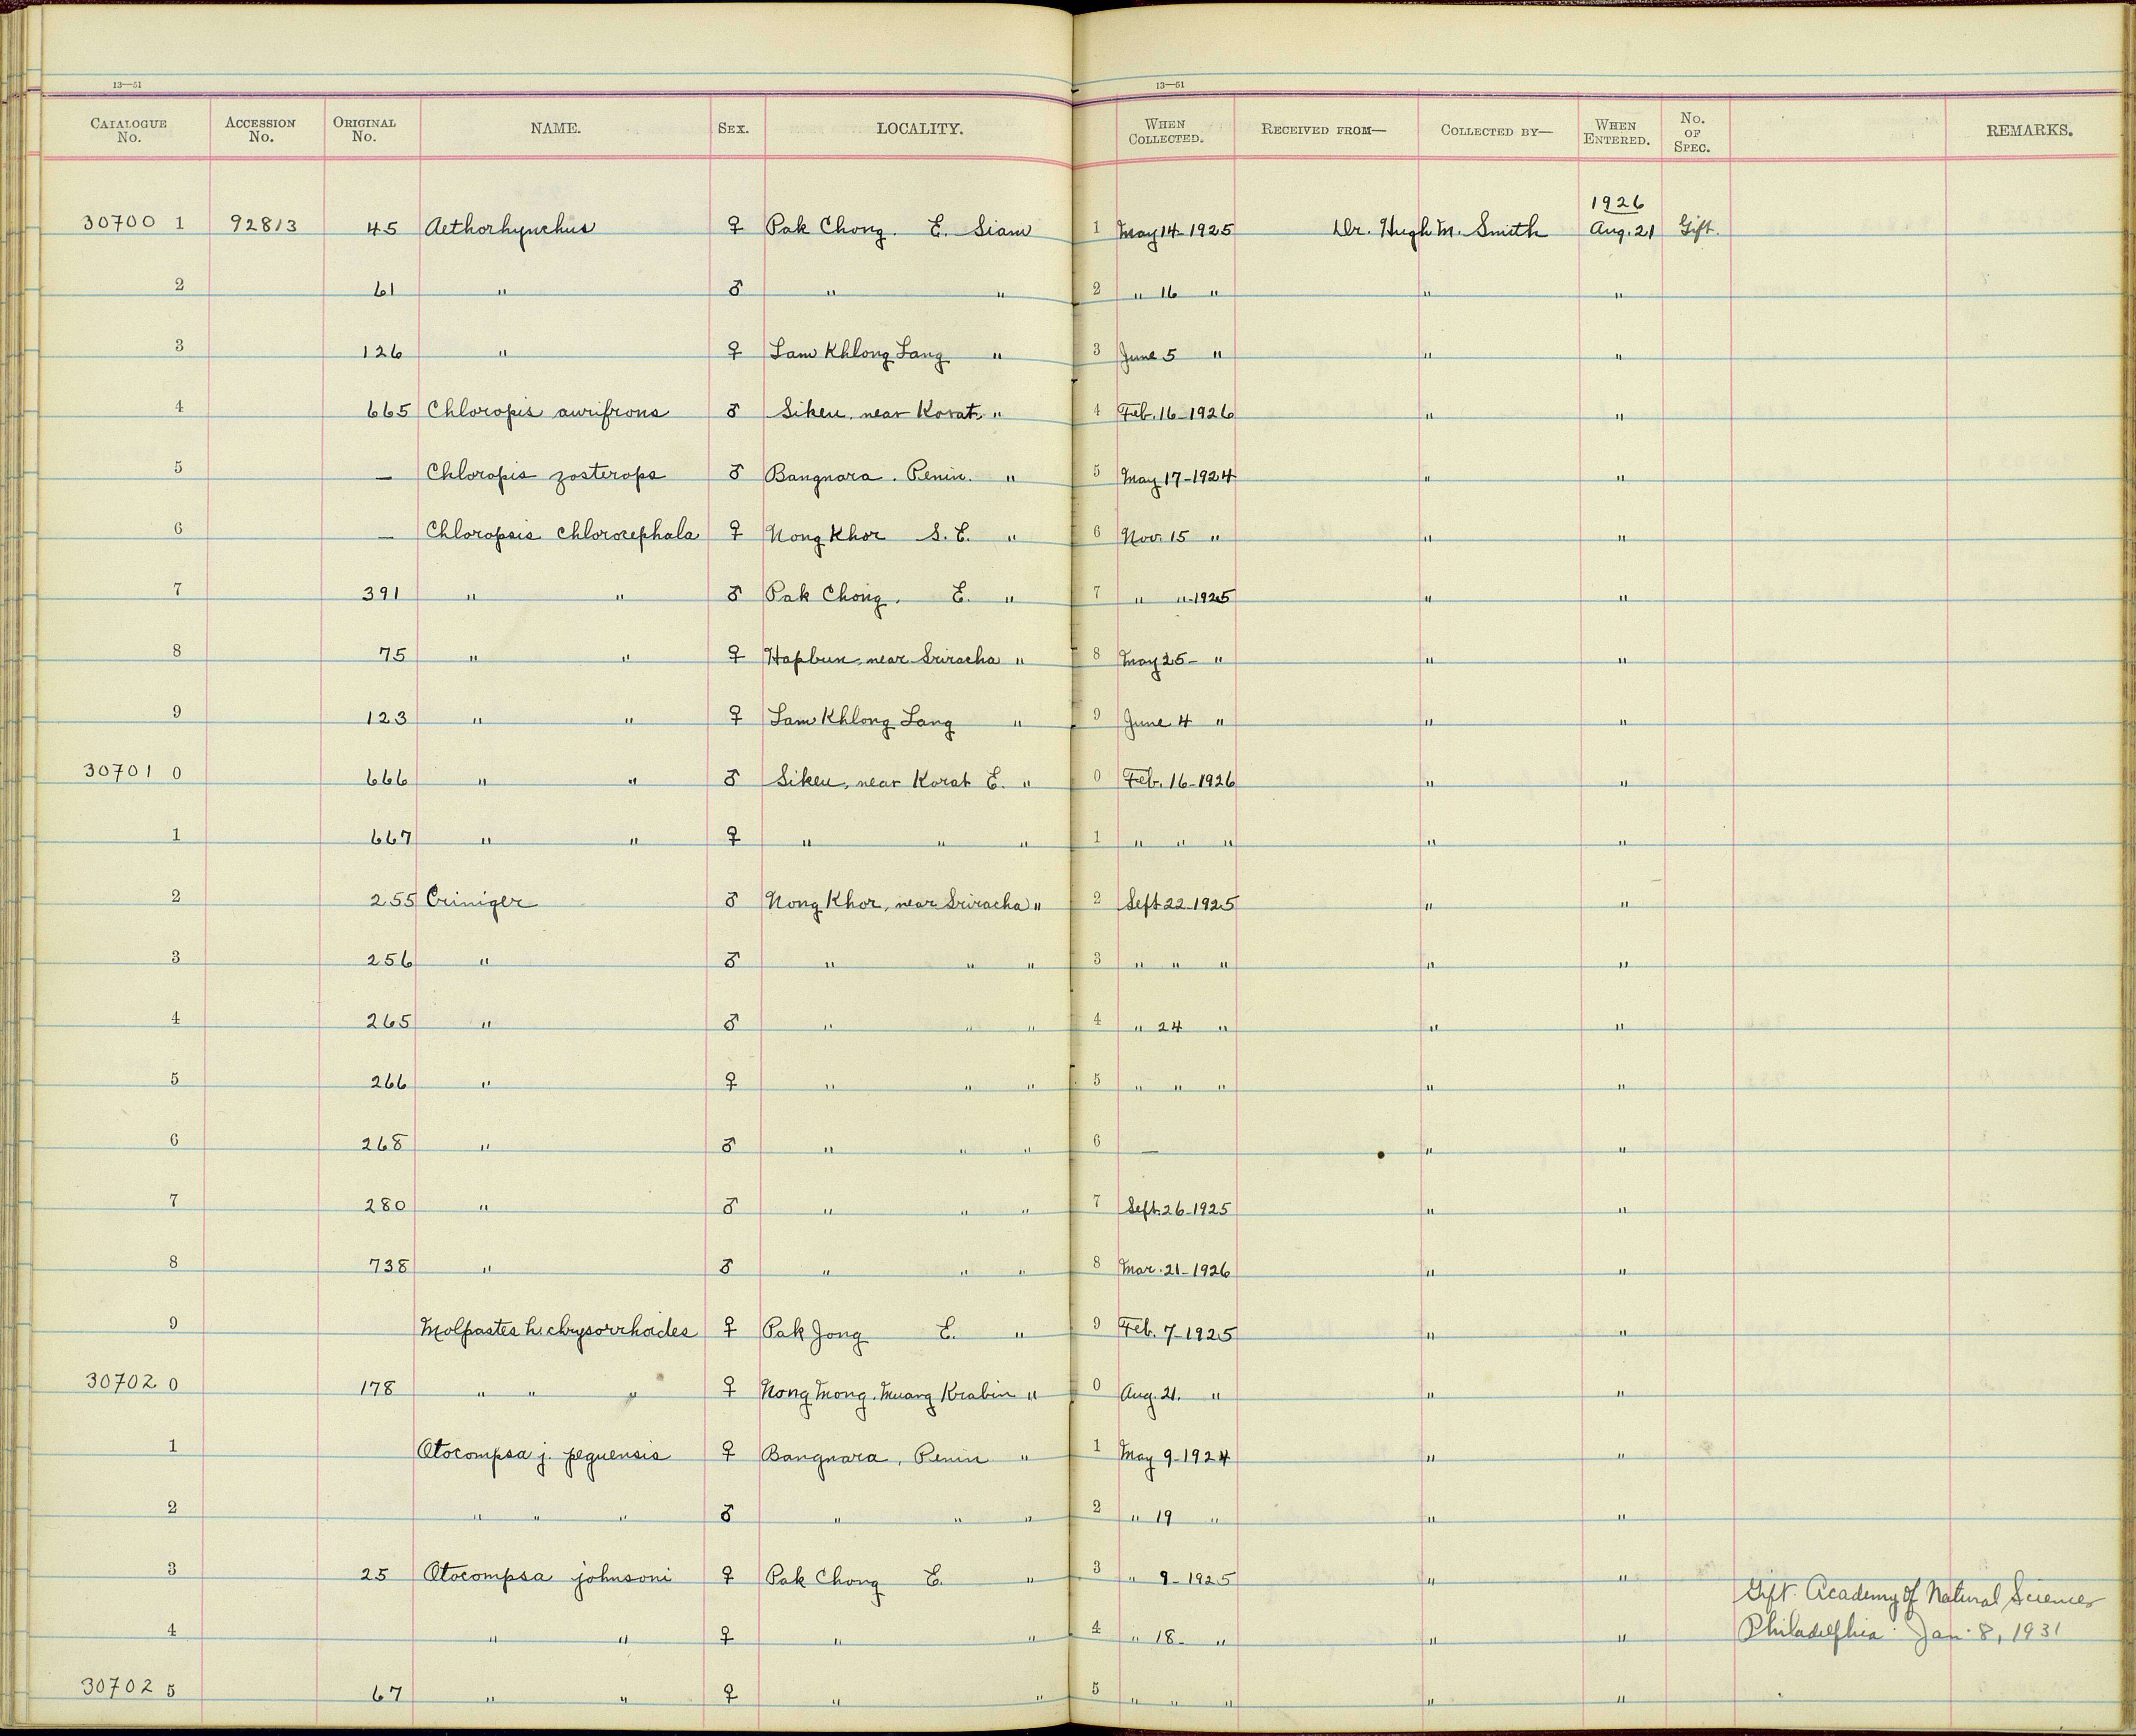 13—51 13—51
CATALOGUE No. ACCESSION No. ORIGINAL No. NAME. SEX. LOCALITY. WHEN COLLECTED. RECEIVED FROM— COLLECTED BY— WHEN ENTERED. No. OF SPEC. REMARKS.
1926
30700 1 92813 45 Aethorhynchus ♀ Pak Chong. E. Siam 1 May 14-1925 Dr. Hugh M. Smith Aug. 21 Gift.
2 61 " ♂ " " 2 " 16 " " "
3 126 " ♀ Lam Khlong Lang " 3 June 5 " " "
4 665 Chloropis aurifrons ♂ Sikeu, near Korat. " 4 Feb. 16-1926 " "
5 — Chloropis zosterops ♂ Bangnara. Penin. " 5 May 17-1924 " "
6 — Chloropsis chlorocephala ♀ Nong Khor S. E. " 6 Nov. 15 " " "
7 391 " " ♂ Pak Chong. E. " 7 " "-1925 " "
8 75 " " ♀ Hapbun, near Sriracha " 8 May 25- " " "
9 123 " " ♀ Lam Khlong Lang " 9 June 4 " " "
30701 0 666 " " ♂ Sikeu, near Korat E. " 0 Feb. 16-1926 " "
1 667 " " ♀ " " " 1 " " " " "
2 255 Criniger ♂ Nong Khor, near Sriracha " 2 Sept 22-1925 " "
3 256 " ♂ " " " 3 " " " " "
4 265 " ♂ " " " 4 " 24 " " "
5 266 " ♀ " " " 5 " " " " "
6 268 " ♂ " " " 6 — " "
7 280 " ♂ " " " 7 Sept. 26-1925 " "
8 738 " ♂ " " " 8 Mar. 21-1926 " "
9 Molpastes h. chrysorrhoides ♀ Pak Jong E. " 9 Feb. 7-1925 " "
30702 0 178 " " " ♀ Nong Mong. Muang Krabin " 0 Aug. 21. " " "
1 Otocompsa j. peguensis ♀ Bangnara, Penin " 1 May 9-1924 " "
2 " " " ♂ " " " 2 " 19 " " "
3 25 Otocompsa johnsoni ♀ Pak Chong E. " 3 " 9-1925 " "
Gift. Academy of Natural Sciences
4 " " ♀ " " 4 " 18- " " " Philadelphia. Jan. 8, 1931
30702 5 67 " " ♀ " " 5 " " " " "